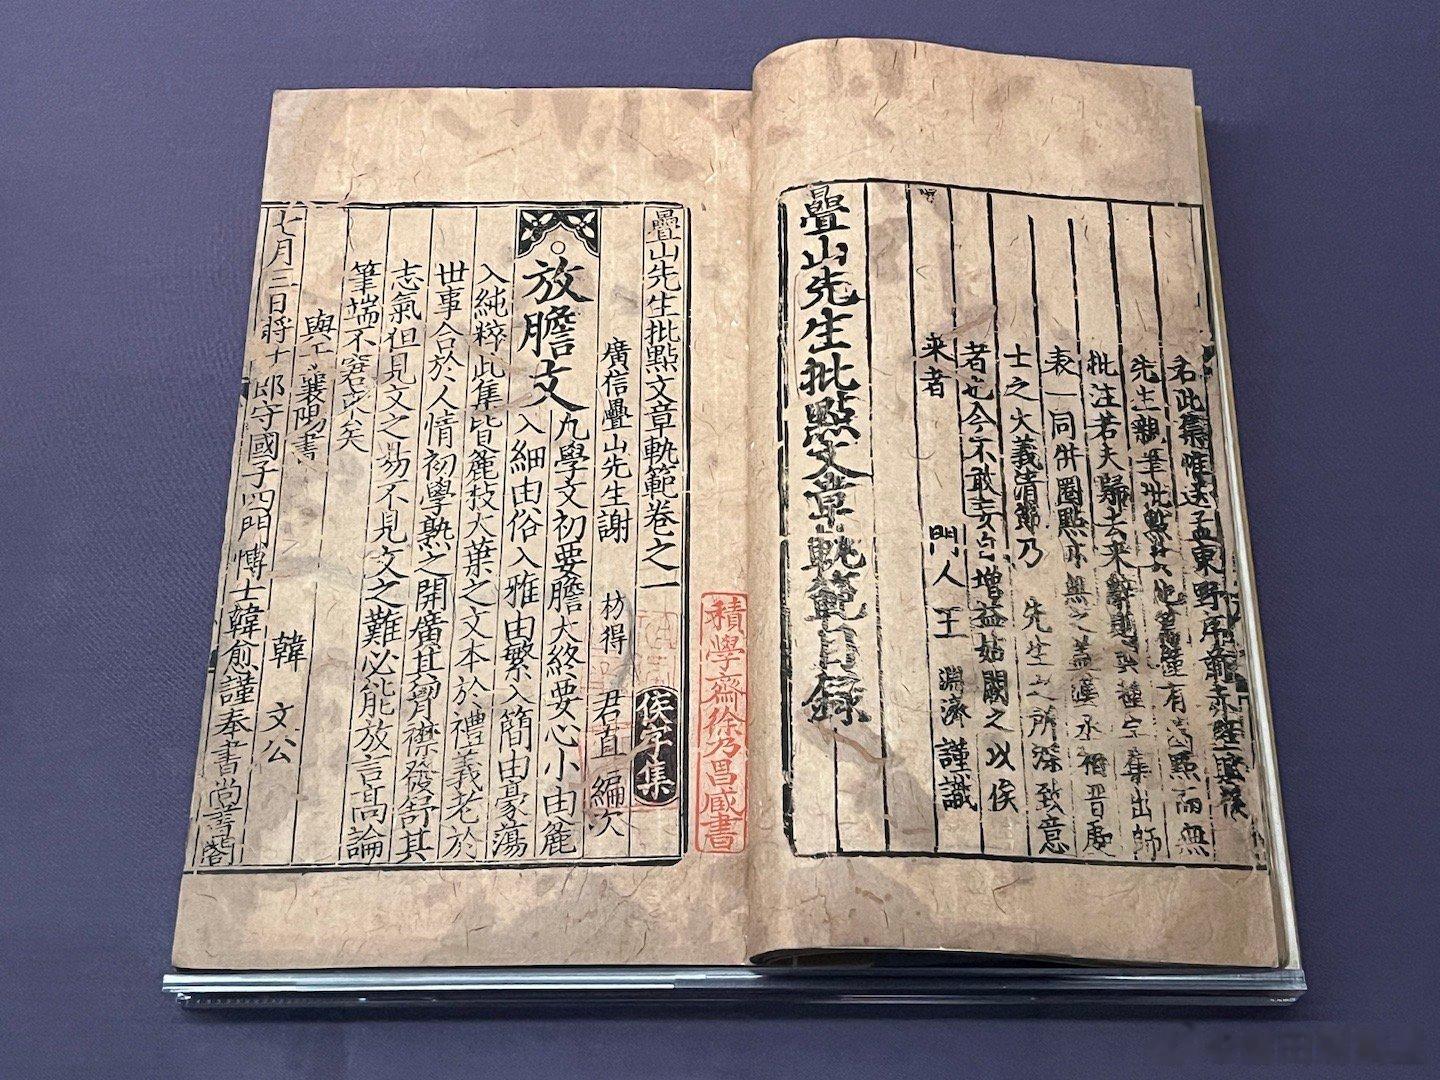 名此集惟送孟東野序前赤壁賦係
先生親筆批點其他篇僅有圈點而無
批注若夫歸去来辭與種字集出師
表一同併圈點亦無之蓋漢丞相晉處
士之大義清節乃 先生之所深致意
者也今不敢妄自增益姑闕之以俟
来者 門人王淵濟謹識
疊山先生批點文章軌範目錄
積學齋徐乃昌臧書
疊山先生批點文章軌範卷之一
侯字集
廣信疊山先生謝 枋得 君直 編次
放膽文
凡學文初要膽大終要心小由麄
入細由俗入雅由繁入簡由豪蕩
入純粹此集皆麄枝大葉之文本於禮義老於
世事合於人情初學熟之開廣其胷襟發舒其
志氣但見文之易不見文之難必能放言高論
筆端不窘束矣
與于襄陽書 韓文公
七月三日將仕郎守國子四門博士韓愈謹奉書尚書閤